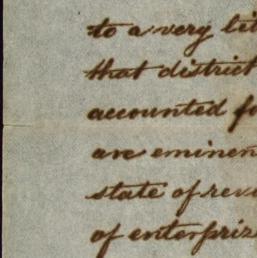 to a very lit
that district
accounted fo
are eminen
state of rev
of enterpriz